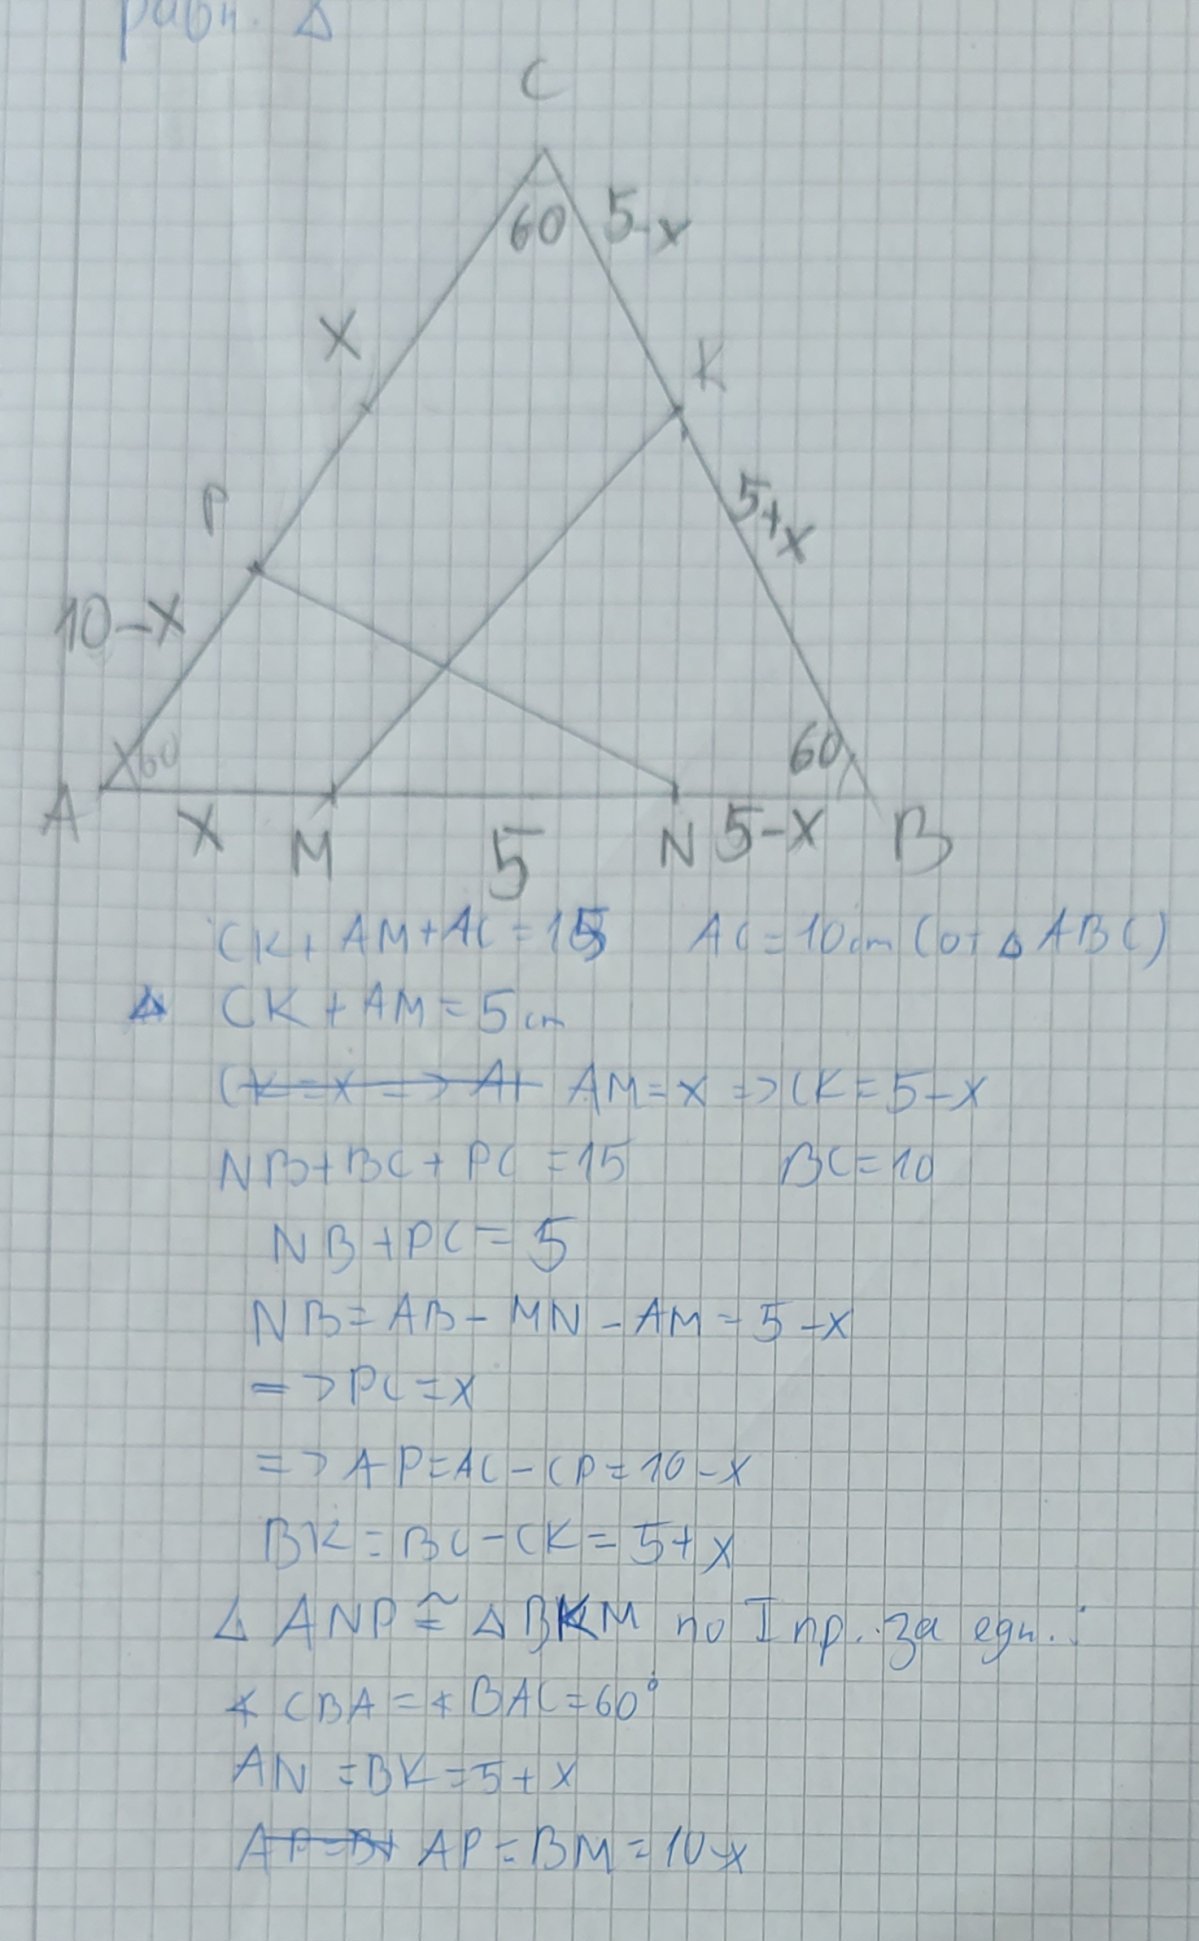 равн. Δ
C
60 5-x
x
K
P
5+x
10-x
60
60
A x M 5 N 5-x B
CK + AM + AC = 15 AC = 10cm (от Δ ABC)
Δ CK + AM = 5cm
CK = x => AM = x => CK = 5-x
NB + BC + PC = 15 BC = 10
NB + PC = 5
NB = AB - MN - AM = 5-x
=> PC = x
=> AP = AC - CP = 10-x
BK = BC - CK = 5+x
Δ ANP ≅ Δ BKM по I пр. за едн.:
∢ CBA = ∢ BAC = 60°
AN = BK = 5+x
AP = BM = 10-x